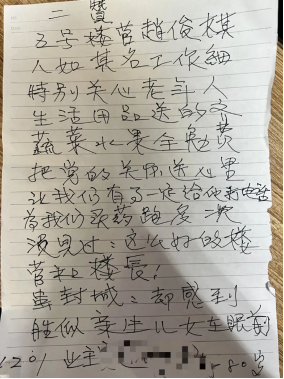 二 贊
五号楼管趙俊棋
人如其名工作細
特别关心老年人
生活用品送的齐
蔬菜水果全免费
把党的关怀送心里
让我们有了一定给他打电话
为我们买药跑多次
没見过：这么好的楼
管和楼長！
虽封城：却感到
胜似亲生儿女在眼前
1201 业主 80岁